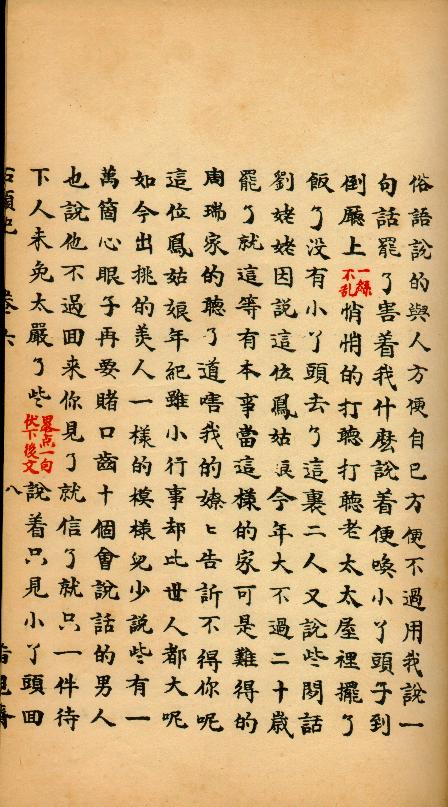 俗語說的與人方便自己方便不過用我說一
句話罷了害着我什麽說着便喚小丫頭子到
倒廳上一絲不乱悄悄的打聽打聽老太太屋裡擺了
飯了没有小丫頭去了這裏二人又說些閒話
劉姥姥因説這位鳳姑娘今年大不過二十歲
罷了就這等有本事當這樣的家可是難得的
周瑞家的聽了道嗐我的嫽〻告訴不得你呢
這位鳳姑娘年紀雖小行事却比世人都大呢
如今出挑的羙人一樣的模樣兒少說些有一
萬箇心眼子再要賭口齒十個會說話的男人
也說他不過回来你見了就信了就只一件待
下人未免太嚴了些畧点一句伏下後文說着只見小丫頭回
石頭記 卷六 八